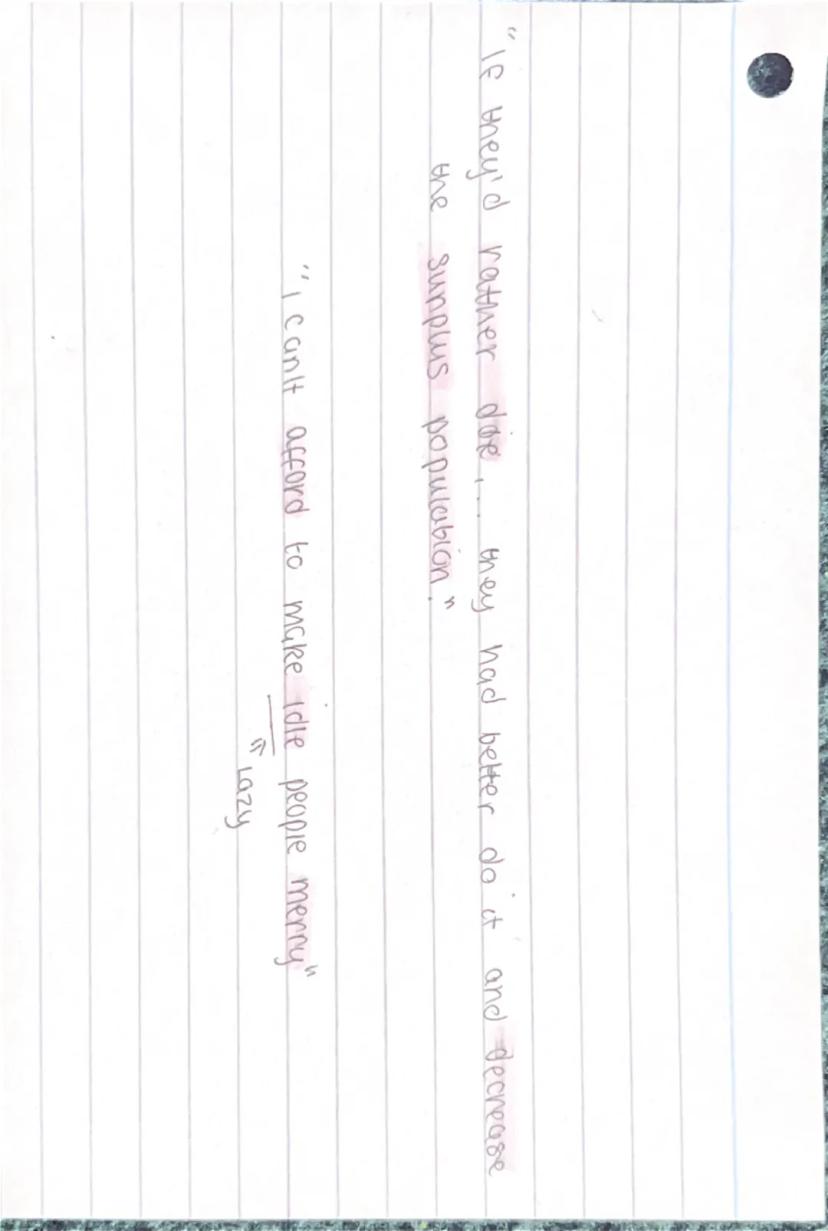 "If they'd rather die,... they had better do it and decrease
the surplus population."
"I can't afford to make idle people merry"
Lazy